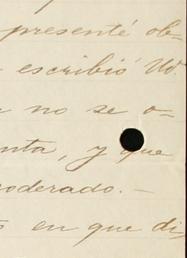 presenté ob-
escribió Ud.
no se o-
nta, y que
moderado. —
en que di